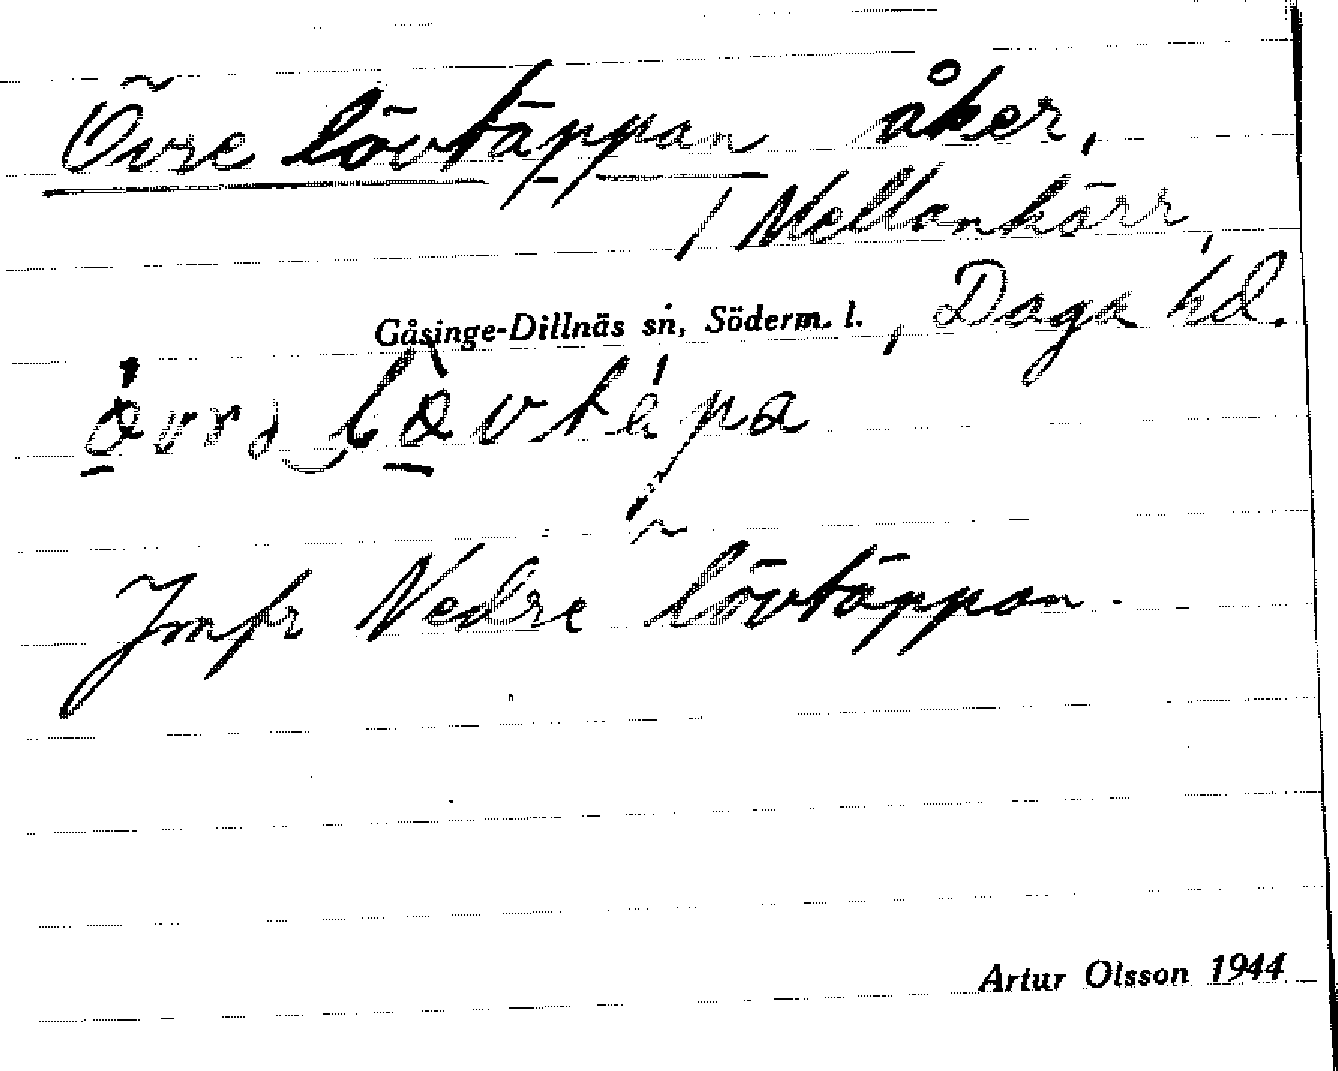 Övre lövtäppan åker,
/ Mellankärr,
Gåsinge-Dillnäs sn, Söderm. l. , Daga hd.
Jmfr Nedre lövtäppan.
Artur Olsson 1944